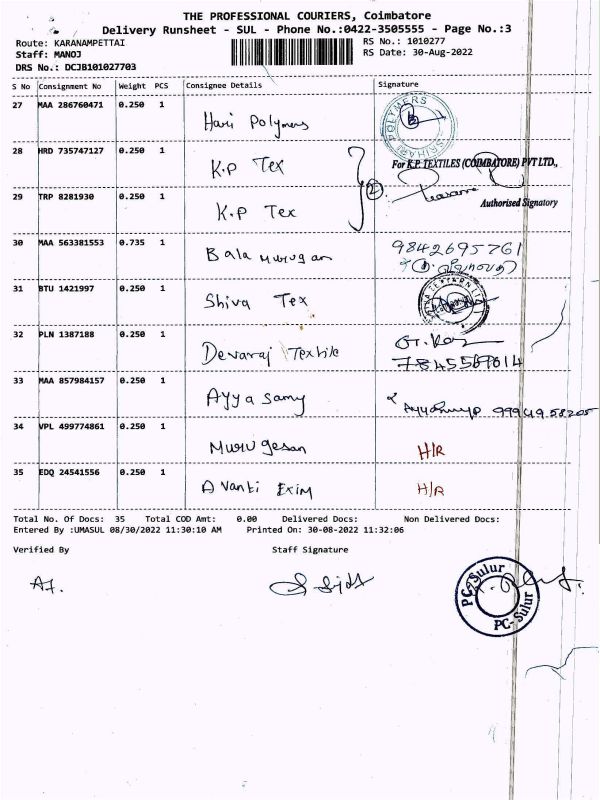 THE PROFESSIONAL COURIERS, Coimbatore
Delivery Runsheet - SUL - Phone No.:0422-3505555 - Page No.:3
Route: KARANAMPETTAI
RS No.: 1010277
Staff: MANOJ
RS Date: 30-Aug-2022
DRS No.: DCJB101027703
S No Consignment No Weight PCS Consignee Details Signature
27 MAA 286760471 0.250 1 Hari Polymers
28 HRD 735747127 0.250 1 K.P Tex
For K.P. TEXTILES (COIMBATORE) PVT LTD.,
2
29 TRP 8281930 0.250 1 K.P Tex
Authorised Signatory
30 MAA 563381553 0.735 1 Bala Murugan 9842695761
31 BTU 1421997 0.250 1 Shiva Tex
32 PLN 1387188 0.250 1 Devaraj Textile
7845567614
33 MAA 857984157 0.250 1 Ayya samy
34 VPL 499774861 0.250 1 Murugesan H/R
35 EDQ 24541556 0.250 1 Avanti Exim H/R
Total No. Of Docs: 35 Total COD Amt: 0.00 Delivered Docs: Non Delivered Docs:
Entered By :UMASUL 08/30/2022 11:30:10 AM Printed On: 30-08-2022 11:32:06
Verified By Staff Signature
PC-Sulur
PC-Sulur